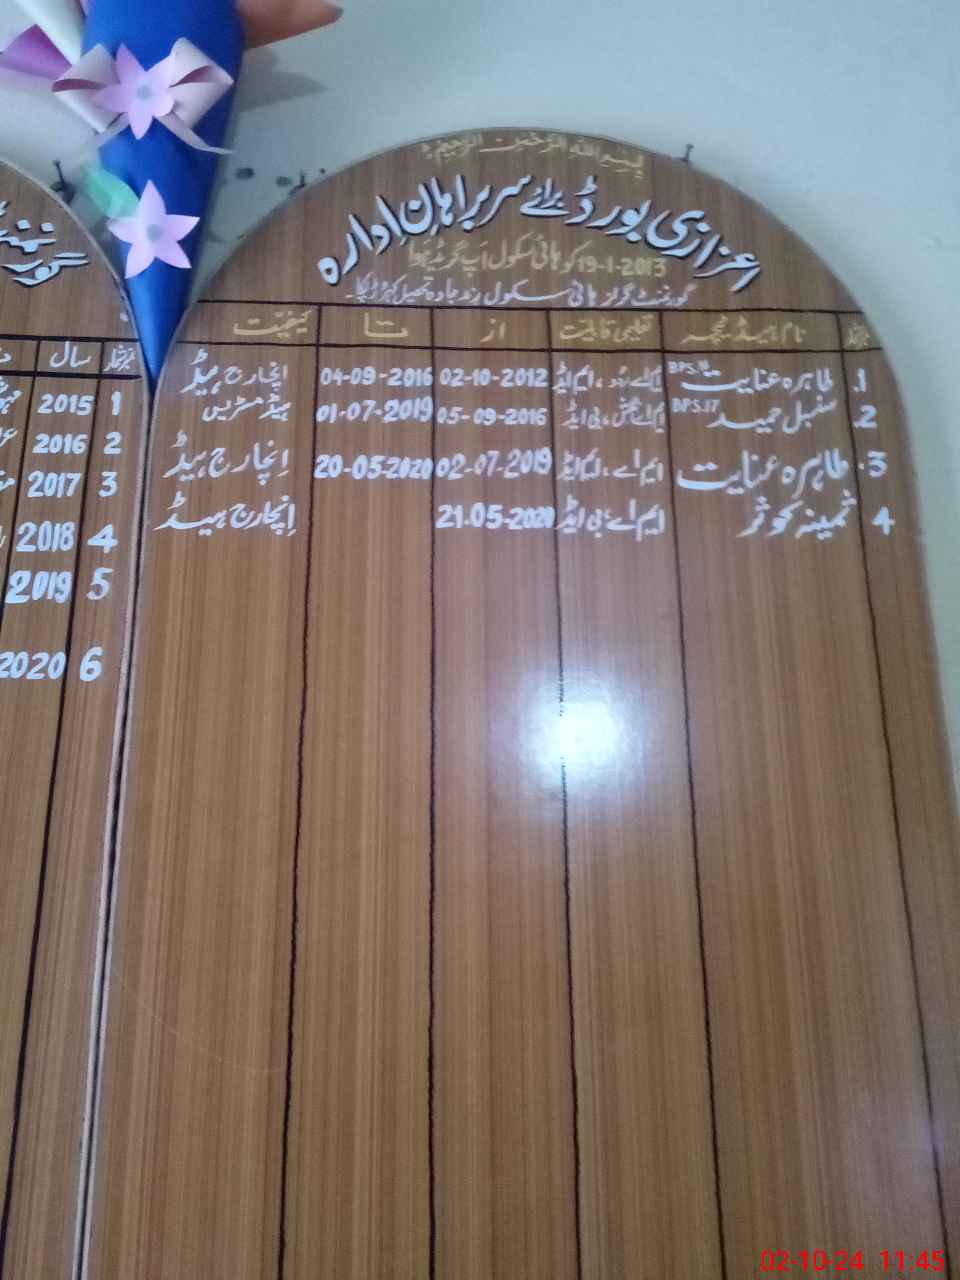 بسم اللہ الرحمٰن الرحیم
اعزازی بورڈ برائے سربراہانِ ادارہ
19-1-2013 کو ہائی سکول اَپ گریڈ ہوا
گورنمنٹ گرلز ہائی سکول زندجادہ تحصیل کہڑپکا۔
نمبرشمار نام ہیڈ ٹیچر تعلیمی قابلیت از تا کیفیت
1. طاہرہ عنایت BPS.16 ایم اے اردو، ایم ایڈ 02-10-2012 04-09-2016 انچارج ہیڈ
2. سنبل حمید BPS.17 بی ایڈ 05-09-2016 01-07-2019 ہیڈ مسٹریس
3. طاہرہ عنایت ایم اے، ایم ایڈ 02-07-2019 20-05-2020 اِنچارج ہیڈ
4 ثمینہ کوثر ایم اے، بی ایڈ 21.05-2020 اِنچارج ہیڈ
گورنمنٹ
نمبرشمار سال
1 2015
2 2016
3 2017
4 2018
5 2019
6 2020
02-10-24 11:45